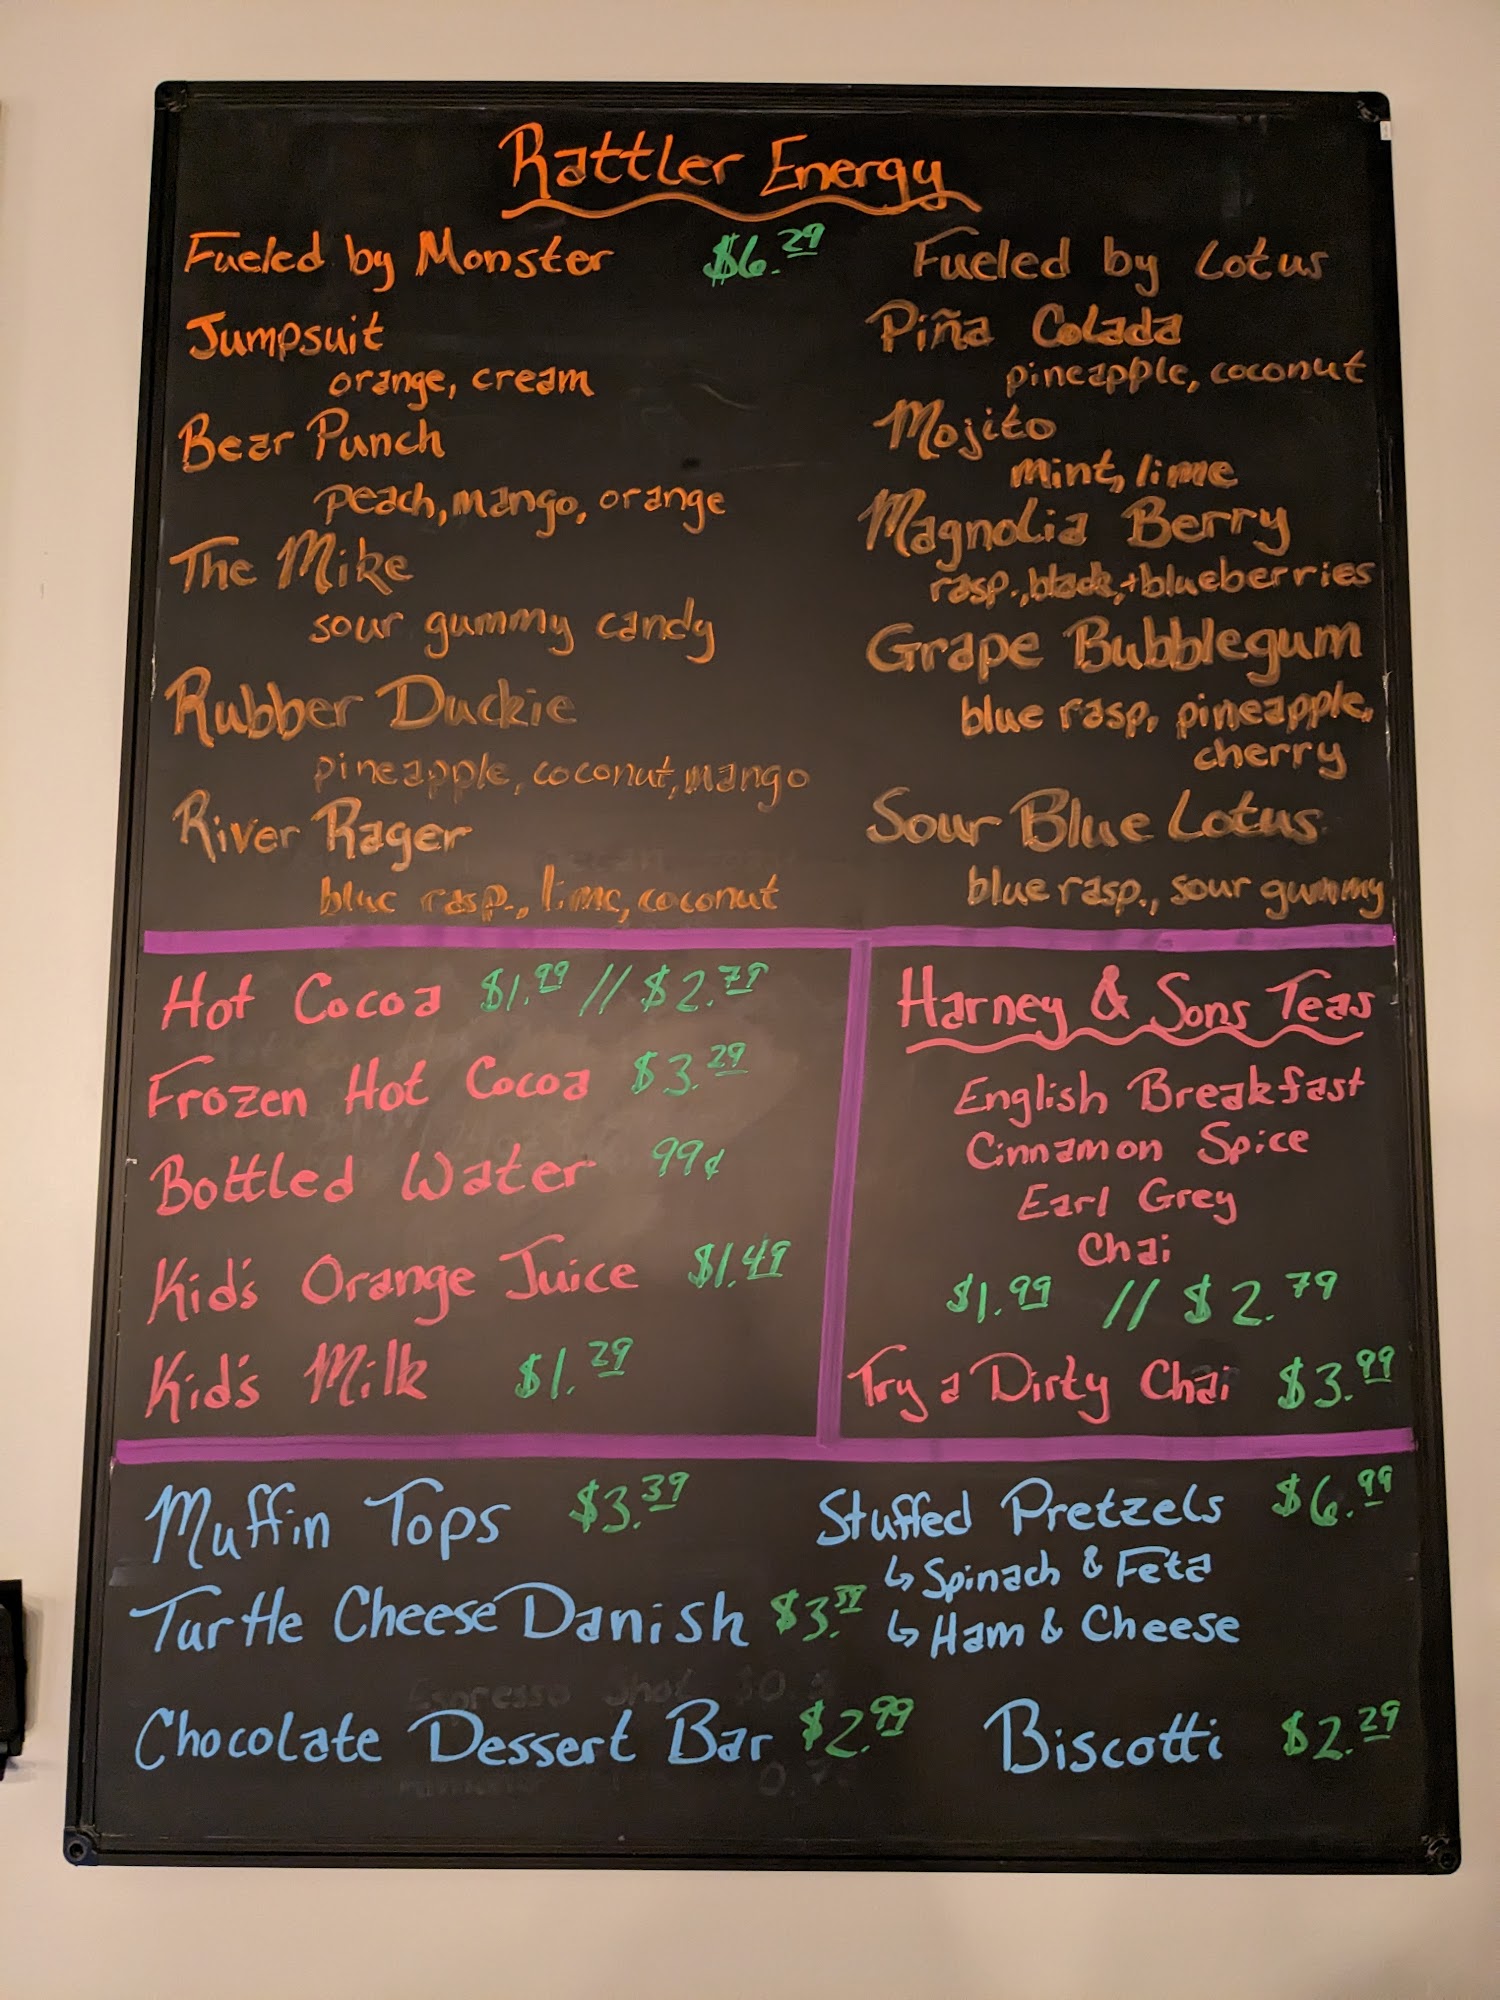 Rattler Energy
Fueled by Monster $6.29
Jumpsuit
orange, cream
Bear Punch
peach, mango, orange
The Mike
sour gummy candy
Rubber Duckie
pineapple, coconut, mango
River Rager
blue rasp., lime, coconut
Fueled by Lotus
Piña Colada
pineapple, coconut
Mojito
mint, lime
Magnolia Berry
rasp., black, + blueberries
Grape Bubblegum
blue rasp, pineapple,
cherry
Sour Blue Lotus
blue rasp., sour gummy
Hot Cocoa $1.99 // $2.79
Frozen Hot Cocoa $3.29
Bottled Water 99¢
Kid's Orange Juice $1.49
Kid's Milk $1.29
Harney & Sons Teas
English Breakfast
Cinnamon Spice
Earl Grey
Chai
$1.99 // $2.79
Try a Dirty Chai $3.99
Muffin Tops $3.39
Turtle Cheese Danish
Chocolate Dessert Bar $2.99
Stuffed Pretzels $6.99
↳ Spinach & Feta
↳ Ham & Cheese
Biscotti $2.29
Espresso Shot